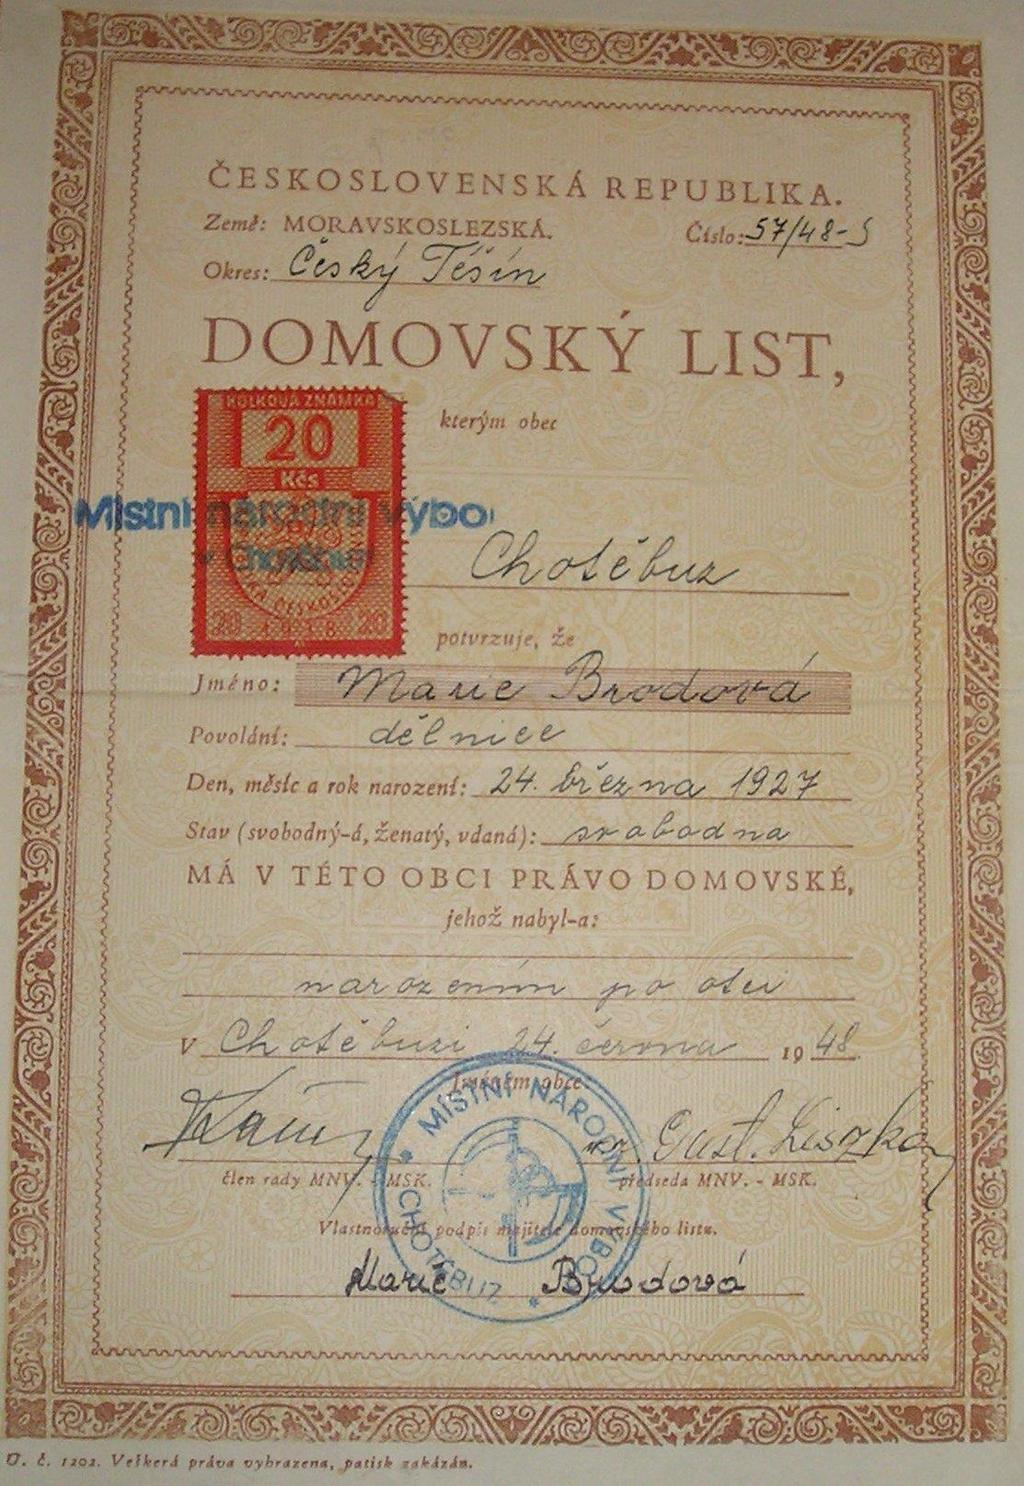 ČESKOSLOVENSKÁ REPUBLIKA.
Země: MORAVSKOSLEZSKÁ.
Číslo: 57/48-S
Okres: Český Těšín
DOMOVSKÝ LIST,
KOLKOVÁ ZNÁMKA
20
Kčs
kterým obec
Místní národní výbo
v Chotěbuzi
Chotěbuz
20 20
potvrzuje, že
Jméno: Marie Brodová
Povolání: dělnice
Den, měsíc a rok narození: 24. března 1927
Stav (svobodný-á, ženatý, vdaná): svobodna
MÁ V TÉTO OBCI PRÁVO DOMOVSKÉ,
jehož nabyl-a:
narozením po otci
V Chotěbuzi 24. června 1948.
Jménem obce
Gust. Liszka
člen rady MNV. - MSK.
předseda MNV. - MSK.
MÍSTNÍ NÁRODNÍ VÝBOR * CHOTĚBUZ *
Vlastnoruční podpis majitele domovského listu.
Marie Brodová
O. č. 1202. Veškerá práva vyhrazena, patisk zakázán.